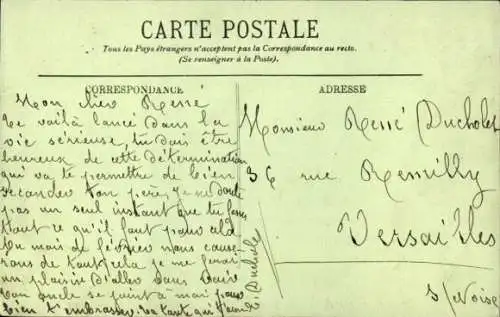 CARTE POSTALE
Tous les Pays étrangers n'acceptent pas la Correspondance au recto.
(Se renseigner à la Poste).
CORRESPONDANCE
Mon cher René
Te voilà lancé dans la
vie sérieuse, tu dois être
heureux de cette détermination
qui va te permettre de bien
seconder ton père, je ne doute
pas un seul instant que tu feras
tout ce qu'il faut pour cela
Au mois de février nous cause-
rons de tout cela je me ferai
un plaisir d'aller dans
Ton oncle se joint à moi pour
bien t'embrasser. Ta tante qui t'aime
Ducholet
ADRESSE
Monsieur René Ducholet
36 rue Remilly
Versailles
S/ Oise